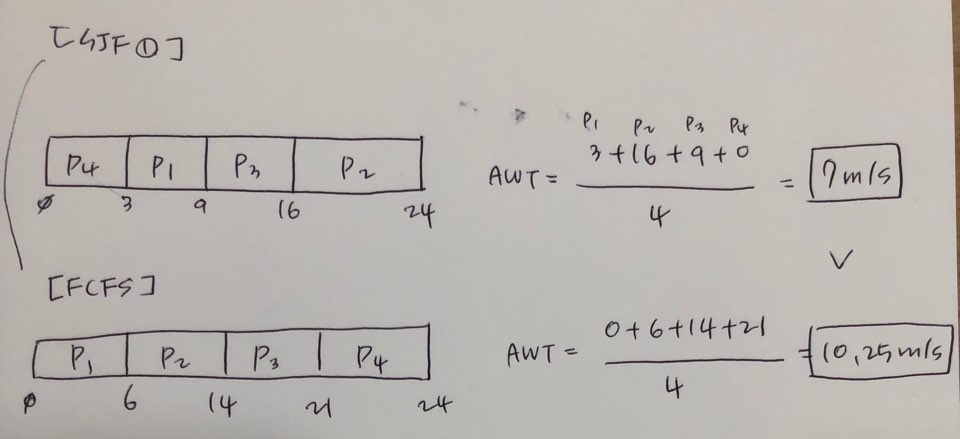 [SJF①]
P4 P1 P3 P2
0 3 9 16 24
P1 P2 P3 P4
AWT = 3+16+9+0 / 4 = 7m/s
∨
[FCFS]
P1 P2 P3 P4
0 6 14 21 24
AWT = 0+6+14+21 / 4 = 10,25m/s